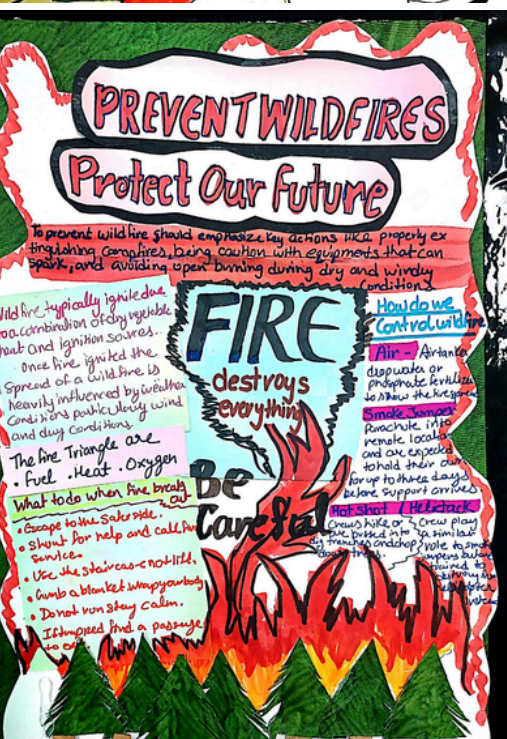 PREVENT WILDFIRES
Protect Our Future
To prevent wild fire should emphasize key actions like properly ex
tinguishing campfires, being caution with equipments that can
spark, and avoiding open burning during dry and windy
conditions
Wild fire typically ignited due
to a combination of dry vegetable
heat and ignition sources.
Once fire ignited the
Spread of a wild fire is
heavily influenced by weather
Conditions particularly wind
and dry conditions.
The fire Triangle are
• Fuel . Heat . Oxygen
What to do when fire breaks
out
• Escape to the safe side.
• Shout for help and call fire
Service.
• Use the staircase not lift.
• blanket wrap your body
• Do not run stay calm.
• If trapped find a passage
to
FIRE
destroys
everything
Be
Careful
How do we
Control wildfire
Air - Airtanker
drop water or
phosphate fertilizer
to slow the fire spread
Smoke Jumper
Parachute into
remote location
and are expected
to hold their own
for up to three days
before support arrives
Hotshot
Crews hike or
are bussed into
dig trenches and chop
down trees.
Helitack
Crew play
a similar
role to smoke
jumpers but are
trained to